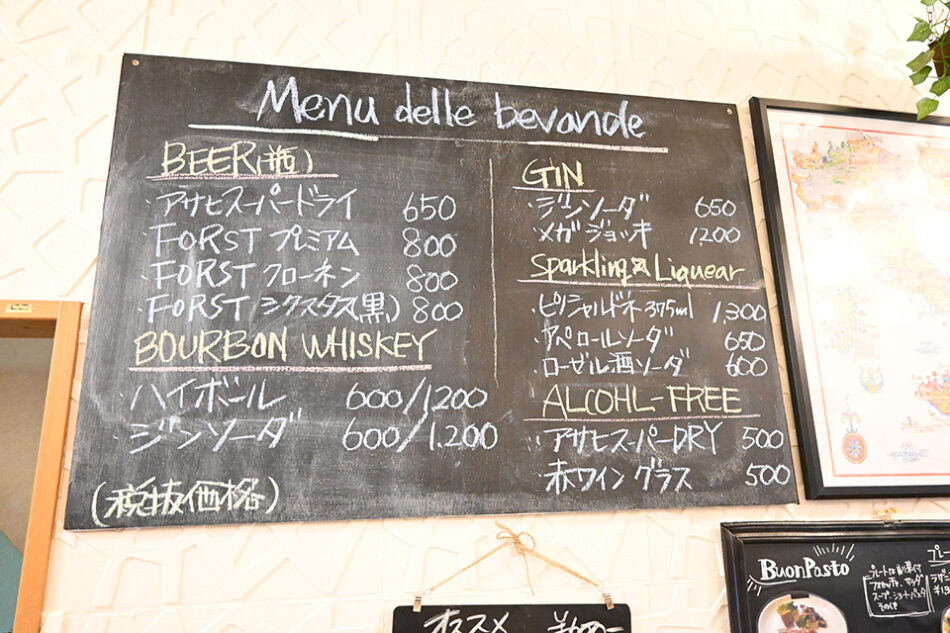 Menu delle bevande
BEER(瓶)
・アサヒスーパードライ 650
・FORST プレミアム 800
・FORST クローネン 800
・FORST シクスタス(黒) 800
BOURBON WHISKEY
・ハイボール 600/1,200
・ジンソーダ 600/1.200
(税抜価格)
GIN
・ジンソーダ 650
・メガジョッキ 1200
Sparkling Liquear
・ピノシャルドネ 375ml 1,300
・アペロールソーダ 650
・ローゼル酒ソーダ 600
ALCOHL-FREE
・アサヒスーパーDRY 500
・赤ワイングラス 500
オススメ
BuonPasto
スープ、ショートパスタ